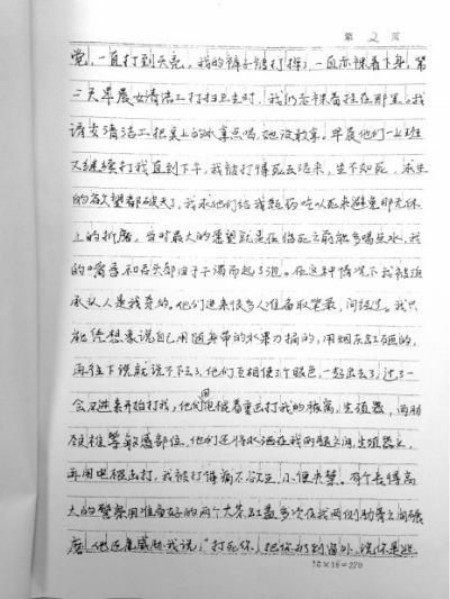 第 2 页
觉，一直打到天亮，我的裤子被打掉，一直赤裸着下身，第
二天早晨女清洁工打扫卫生时，我仍赤裸着挂在那里。我
请女清洁工把桌上的水拿点喝，她没敢拿。早晨他们一上班
又继续打我直到下午，我被打得死去活来，生不如死，求生
的欲望都破灭了，我求他们给我毒药吃以死来避免那无休
止的折磨。当时最大的愿望就是在临死之前能多喝点水，我
的嘴唇和舌头都由于干渴而起了泡。在这种情况下我被迫
承认人是我杀的。他们进来很多人准备取笔录，问经过。我只
能凭想象说自己用随身带的水果刀捅的，用烟灰缸砸的，
再往下说就说不下去了，他们互相使个眼色，一起出去了，过了一
会又进来开始打我，他们用电棍着重击打我的腋窝，生殖器，两肋
颈椎等敏感部位，他们还将水洒在我两腿之间，生殖器上，
再用电棍击打，我被打得痛不欲生，小便失禁。有个长得高
大的警察用准备好的两个大茶缸盖多次在我两侧肋骨之间碾
磨，他还威胁我说：“打死你，把你扔到窗外，说你是
12×16=220